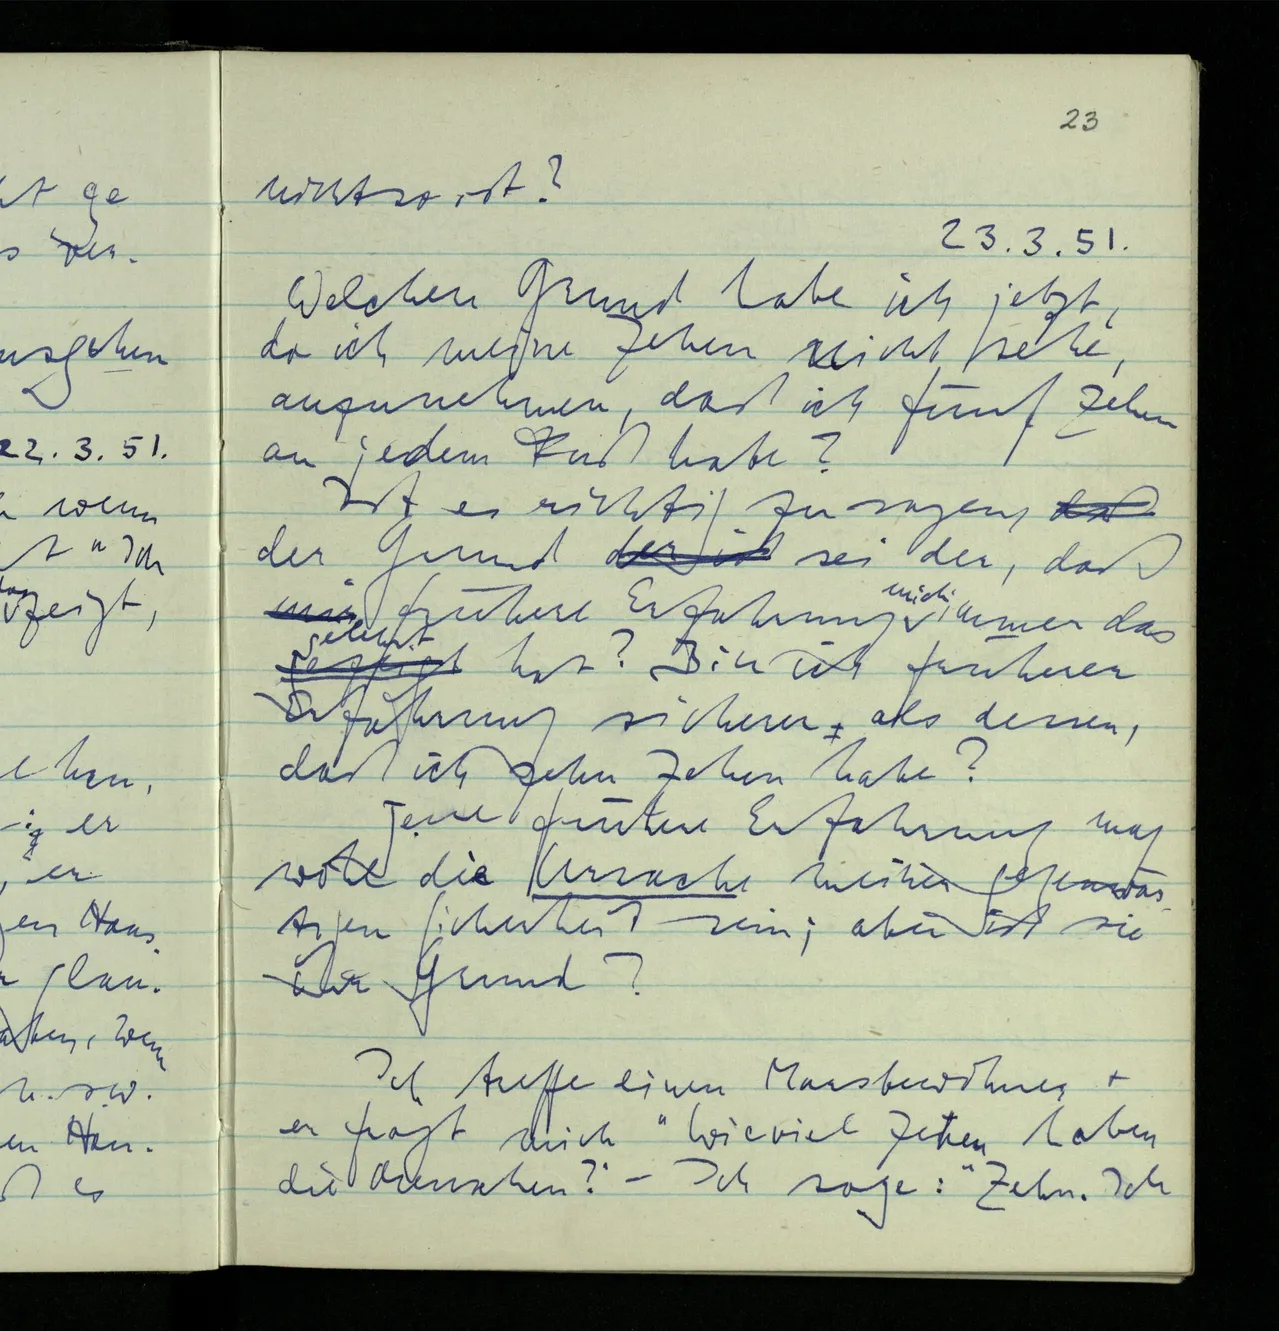 23
nicht so ist?
23.3.51.
Welchen Grund habe ich jetzt,
da ich meine Zehen nicht sehe,
anzunehmen, daß ich fünf Zehen
an jedem Fuß habe?
Ist es richtig zu sagen, daß
der Grund der ist sei der, daß
mir frühere Erfahrung mich immer das
gelehrt
gezeigt hat? Bin ich früherer
Erfahrung sicherer, als dessen,
daß ich zehn Zehen habe?
Jene frühere Erfahrung mag
wohl die Ursache meiner gegenwär-
tigen Sicherheit sein; aber ist sie
ihr Grund?
Ich treffe einen Marsbewohner +
er fragt mich "Wieviel Zehen haben
die Menschen?" – Ich sage: "Zehn. Ich
ht ge
22.3.51.
wenn
zeigt,
er
er
u.s.w.
es